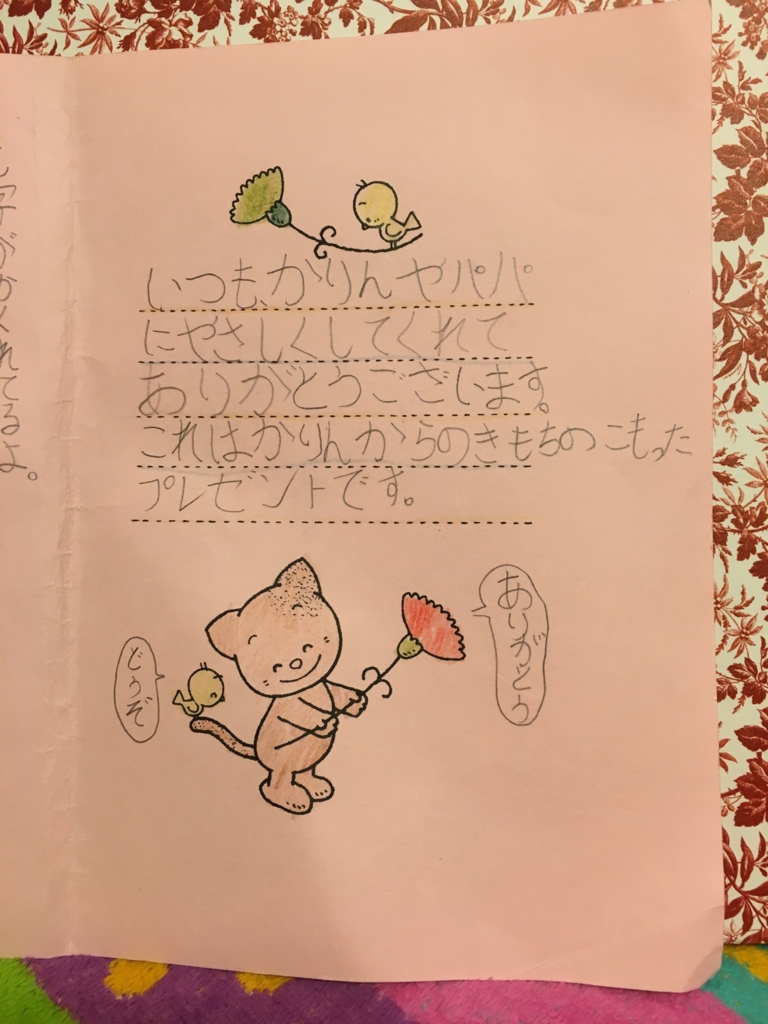 いつも、かりんやパパ
にやさしくしてくれて
ありがとうございます。
これはかりんからのきもちのこもった
プレゼントです。
ありがとう
どうぞ
てるよ。